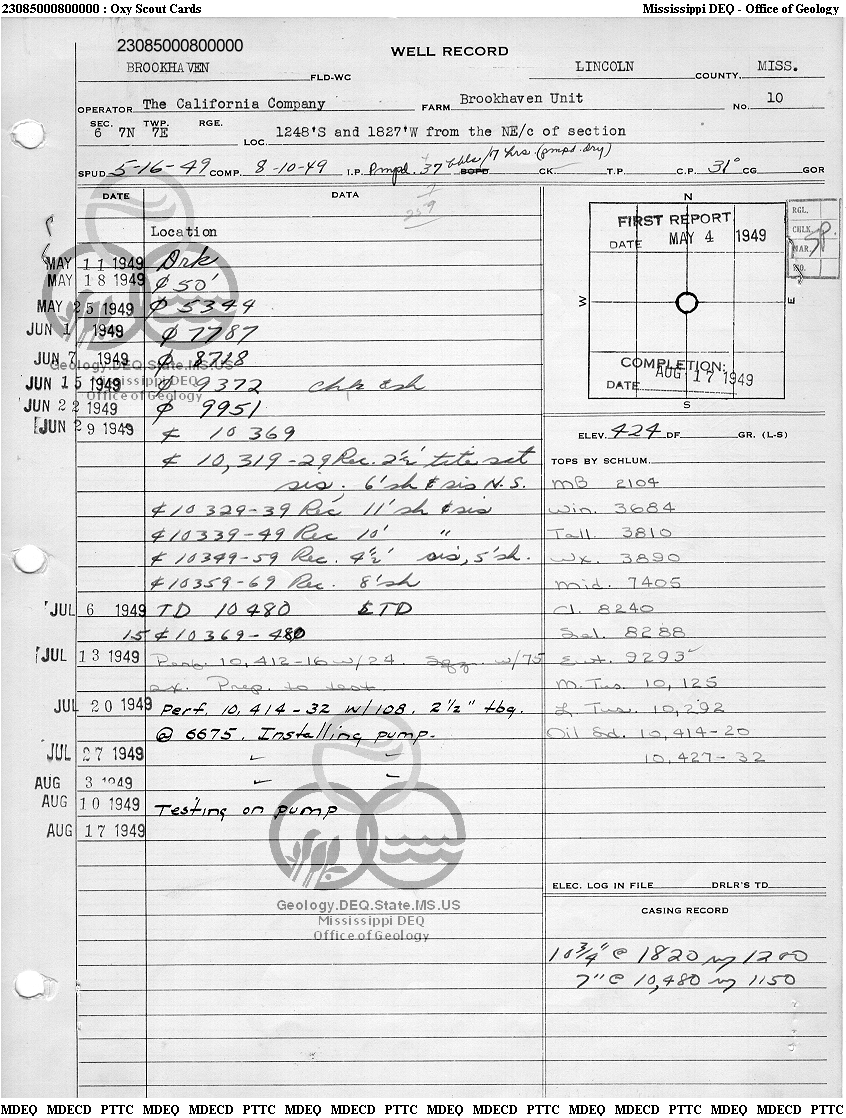 23085000800000 : Oxy Scout Cards Mississippi DEQ - Office of Geology
23085000800000
WELL RECORD
BROOKHAVEN FLD-WC LINCOLN COUNTY, MISS.
OPERATOR The California Company FARM Brookhaven Unit NO. 10
SEC. TWP. RGE.
6 7N 7E LOC. 1248'S and 1827'W from the NE/c of section
SPUD 5-16-49 COMP. 8-10-49 I.P. Pmpd. 37 bbls/17 hrs. (pmpd. dry) BOPD CK. T.P. C.P. 31° CG GOR
DATE DATA
259
N
W
E
S
RGL.
CHLK.
MAR.
NO.
FIRST REPORT
DATE MAY 4 1949
COMPLETION:
DATE AUG 17 1949
Location
MAY 11 1949 Drk
MAY 18 1949 ₵ 50'
MAY 25 1949 ₵ 5344
JUN 1 1949 ₵ 7787
JUN 7 1949 ₵ 8718
JUN 15 1949 ₵ 9372 Chk & sh
JUN 22 1949 ₵ 9951
JUN 29 1949 ₵ 10369
₵ 10,319-29 Rec. 2½' tite sat
sis. 6' sh & sis N.S.
₵ 10329-39 Rec 11' sh & sis
₵ 10339-49 Rec 10' "
₵ 10349-59 Rec. 4½' sis, 5' sh.
₵ 10359-69 Rec. 8' sh
JUL 6 1949 TD 10480 ETD
15 ₵ 10369-480
JUL 13 1949 Perf. 10,412-16 w/24. Sqz. w/75
sx. Prep. to test.
JUL 20 1949 Perf. 10,414-32 w/108. 2½" tbg.
@ 6675. Installing pump.
JUL 27 1949
AUG 3 1949
AUG 10 1949 Testing on pump
AUG 17 1949
ELEV. 424 DF GR. (L-S)
TOPS BY SCHLUM.
MB 2104
Win. 3684
Tall. 3810
Wx. 3890
Mid. 7405
Cl. 8240
Sel. 8288
Eut. 9293
M. Tus. 10,125
L Tus. 10,292
Oil Sd. 10,414-20
10,427-32
ELEC. LOG IN FILE DRLR'S TD
CASING RECORD
10¾" @ 1820 w/ 1200
7" @ 10,480 w/ 1150
Geology.DEQ.State.MS.US
Mississippi DEQ
Office of Geology
Geology.DEQ.State.MS.US
Mississippi DEQ
Office of Geology
MDEQ MDECD PTTC MDEQ MDECD PTTC MDEQ MDECD PTTC MDEQ MDECD PTTC MDEQ MDECD PTTC MDEQ MDECD PTTC